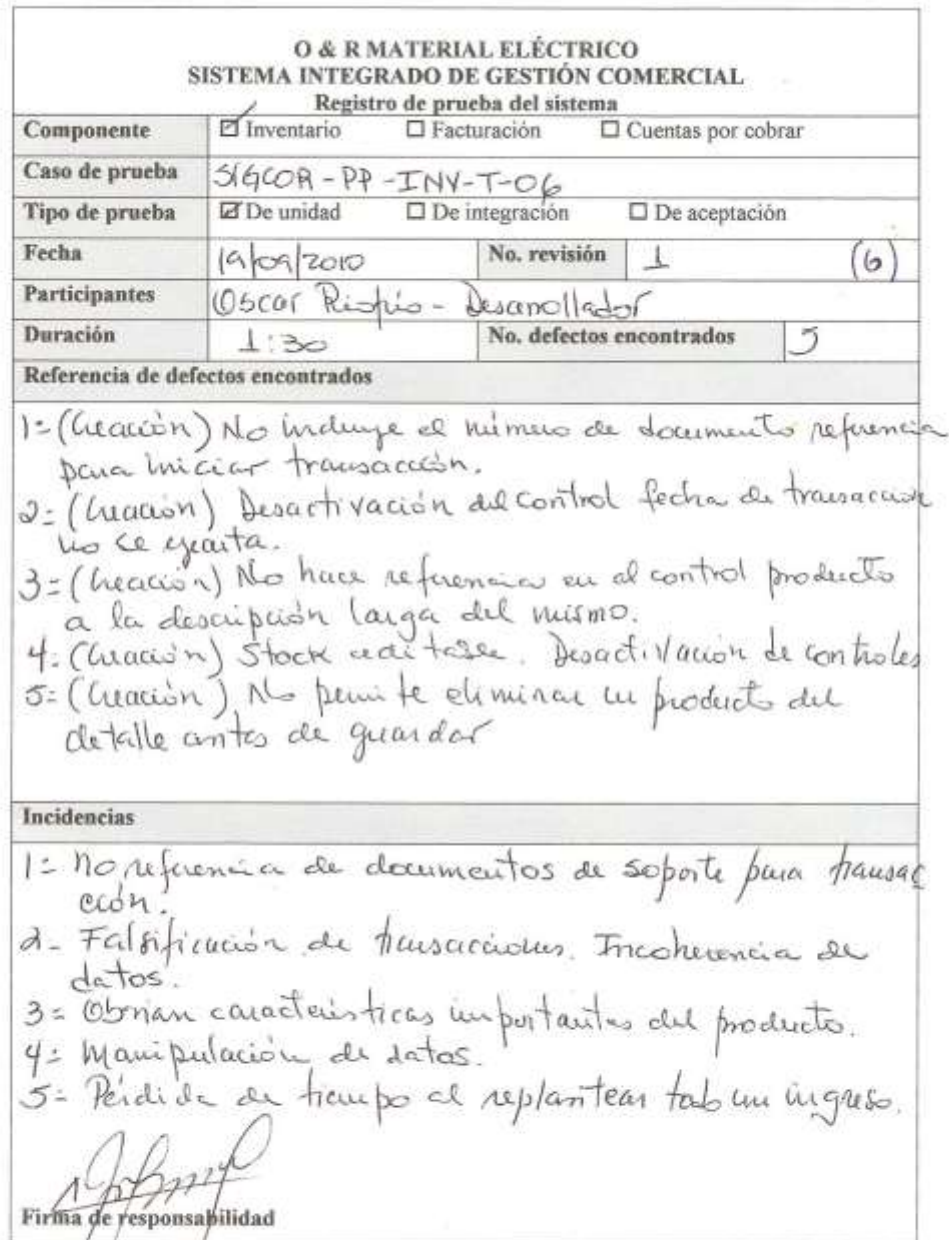 O & R MATERIAL ELÉCTRICO
SISTEMA INTEGRADO DE GESTIÓN COMERCIAL
Registro de prueba del sistema
Componente ☑ Inventario ☐ Facturación ☐ Cuentas por cobrar
Caso de prueba SIGCOR-PP-INV-T-06
Tipo de prueba ☑ De unidad ☐ De integración ☐ De aceptación
Fecha 19/09/2010 No. revisión 1 (6)
Participantes Oscar - Desarrollador
Duración 1:30 No. defectos encontrados 5
Referencia de defectos encontrados
1= (Creación) No incluye el número de documento referencia
para iniciar transacción.
2= (Creación) Desactivación del control fecha de transacción
no se ejecuta.
3= (Creación) No hace referencia en el control producto
a la descripción larga del mismo.
4= (Creación) Stock editable. Desactivación de controles
5= (Creación) No permite eliminar un producto del
detalle antes de guardar
Incidencias
1= No referencia de documentos de soporte para transac
cción.
2- Falsificación de transacciones. Incoherencia de
datos.
3= Obvian características importantes del producto.
4= Manipulación de datos.
5= Pérdida de tiempo al replantear todo un ingreso.
Firma de responsabilidad